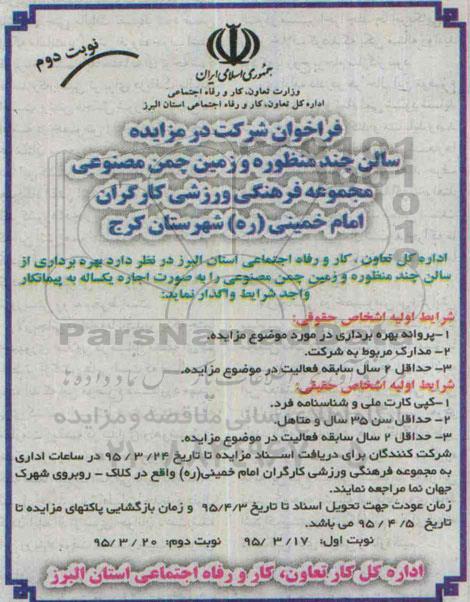 نوبت دوم
جمهوری اسلامی ایران
وزارت تعاون، کار و رفاه اجتماعی
اداره کل تعاون، کار و رفاه اجتماعی استان البرز
فراخوان شرکت در مزایده
سالن چند منظوره و زمین چمن مصنوعی
مجموعه فرهنگی ورزشی کارگران
امام خمینی (ره) شهرستان کرج
اداره کل تعاون، کار و رفاه اجتماعی استان البرز در نظر دارد بهره برداری از
سالن چند منظوره و زمین چمن مصنوعی را به صورت اجاره یکساله به پیمانکار
واجد شرایط واگذار نماید:
شرایط اولیه اشخاص حقوقی:
۱-پروانه بهره برداری در مورد موضوع مزایده.
۲- مدارک مربوط به شرکت.
۳- حداقل ۲ سال سابقه فعالیت در موضوع مزایده.
شرایط اولیه اشخاص حقیقی:
۱-کپی کارت ملی و شناسنامه فرد.
۲- حداقل سن ۳۵ سال و متاهل.
۳- حداقل ۲ سال سابقه فعالیت در موضوع مزایده.
شرکت کنندگان برای دریافت اسناد مزایده تا تاریخ ۹۵/۳/۲۴ در ساعات اداری
به مجموعه فرهنگی ورزشی کارگران امام خمینی(ره) واقع در کلاک - روبروی شهرک
جهان نما مراجعه نمایند.
زمان عودت جهت تحویل اسناد تا تاریخ ۹۵/۴/۳ و زمان بازگشایی پاکتهای مزایده تا
تاریخ ۹۵/۴/۵ می باشد.
نوبت اول: ۹۵/۳/۱۷ نوبت دوم: ۹۵/۳/۲۰
اداره کل کار تعاون، کار و رفاه اجتماعی استان البرز